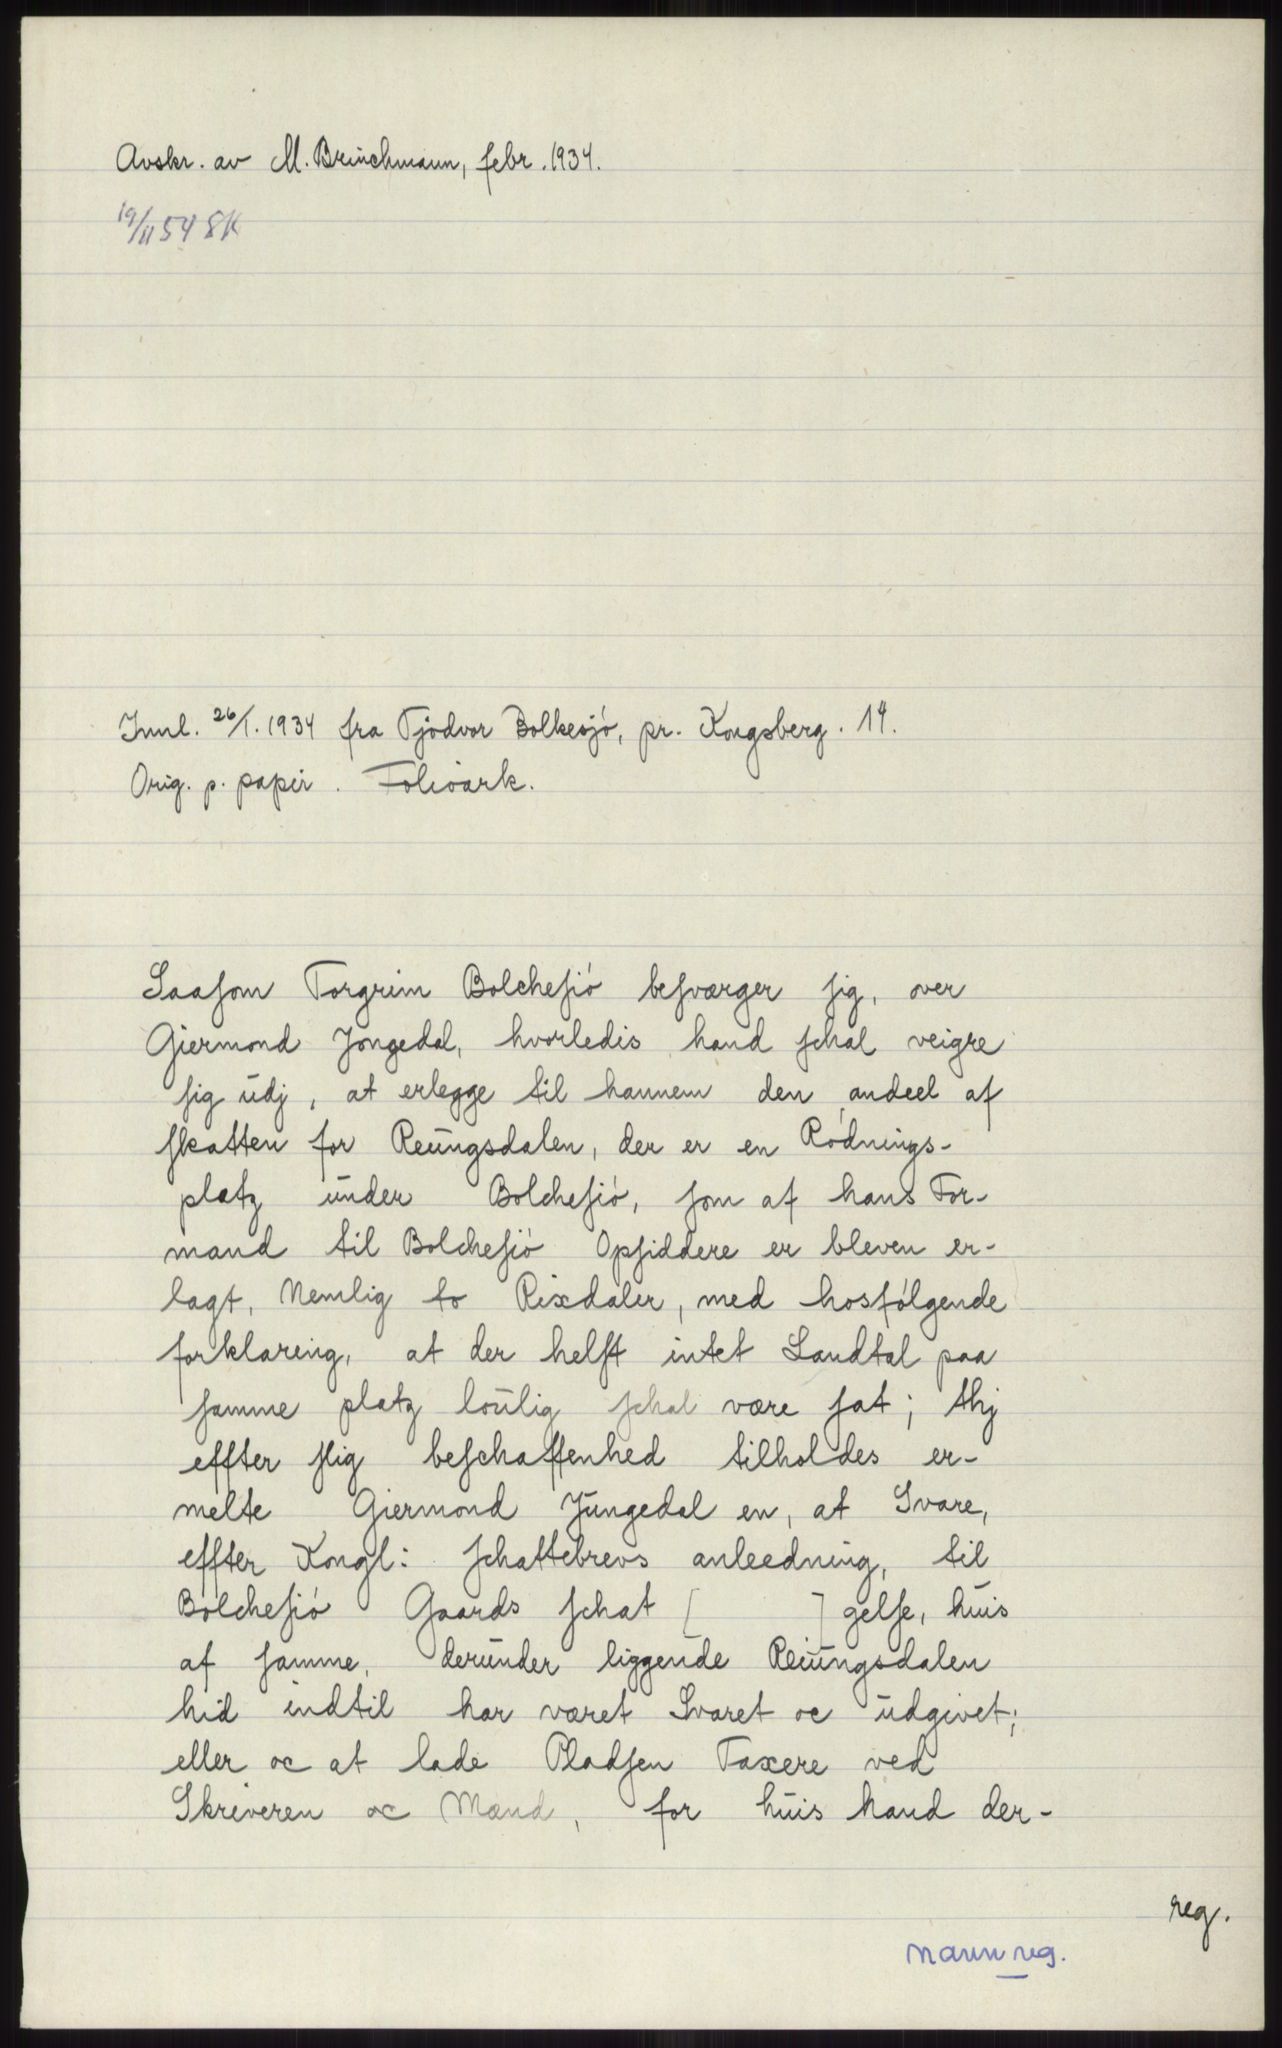 Avskr. av M. Brinchmann, febr. 1934.
19/11 54 SK
Innl. 26/1. 1934 fra Tjodvor Bolkesjó, pr. Kongsberg. 14.
Orig. p. papir. Folioark.
Saasom Torgrim Bolchesió besværger sig, over
Giermond Jongedal, hvorledis hand schal veigre
sig udj, at erlegge til hannem den andeel af
skatten for Reüngsdalen, der er enRódnings-
platz ünder Bolchesió, som af hans For-
mand til Bolchesió Opsiddere er bleven er-
lagt, Nemlig to Rixdaler, med hosfólgende
forklaring, at der helst intet Landtal paa
samme platz loülig schal være sat; thj
effter slig beschaffenhed tilholdes er-
melte Giermond Jüngedal en, at Svare,
effter Kongl: schattebrevs anleedning, til
Bólchesió Gaards schat [ ] gelse, hüis
af samme, deründer liggende Reiüngsdalen
hid indtil har været Svaret oc üdgivet;
eller oc at lade Pladsen Taxere ved
Skriveren oc Mænd, for hüis hand der-
reg.
navnreg.